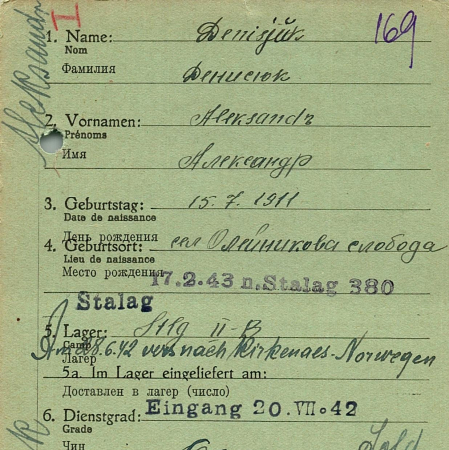 I
169
Aleksandr
1. Name: Denisjuk
Nom
Фамилия Денисюк
2. Vornamen: Aleksandr
Prénoms
Имя Александр
3. Geburtstag: 15.7.1911
Date de naissance
День рождения
4. Geburtsort: сел Олейникова слобода
Lieu de naissance
Место рождения
17.2.43 n. Stalag 380
Stalag
5. Lager: Stlg II-B
Camp
Лагер
Am 28.6.42 vers nach Kirkenaes-Norwegen
5a. Im Lager eingeliefert am:
Доставлен в лагер (число)
Eingang 20.VII.42
6. Dienstgrad:
Grade
Чин
Sold